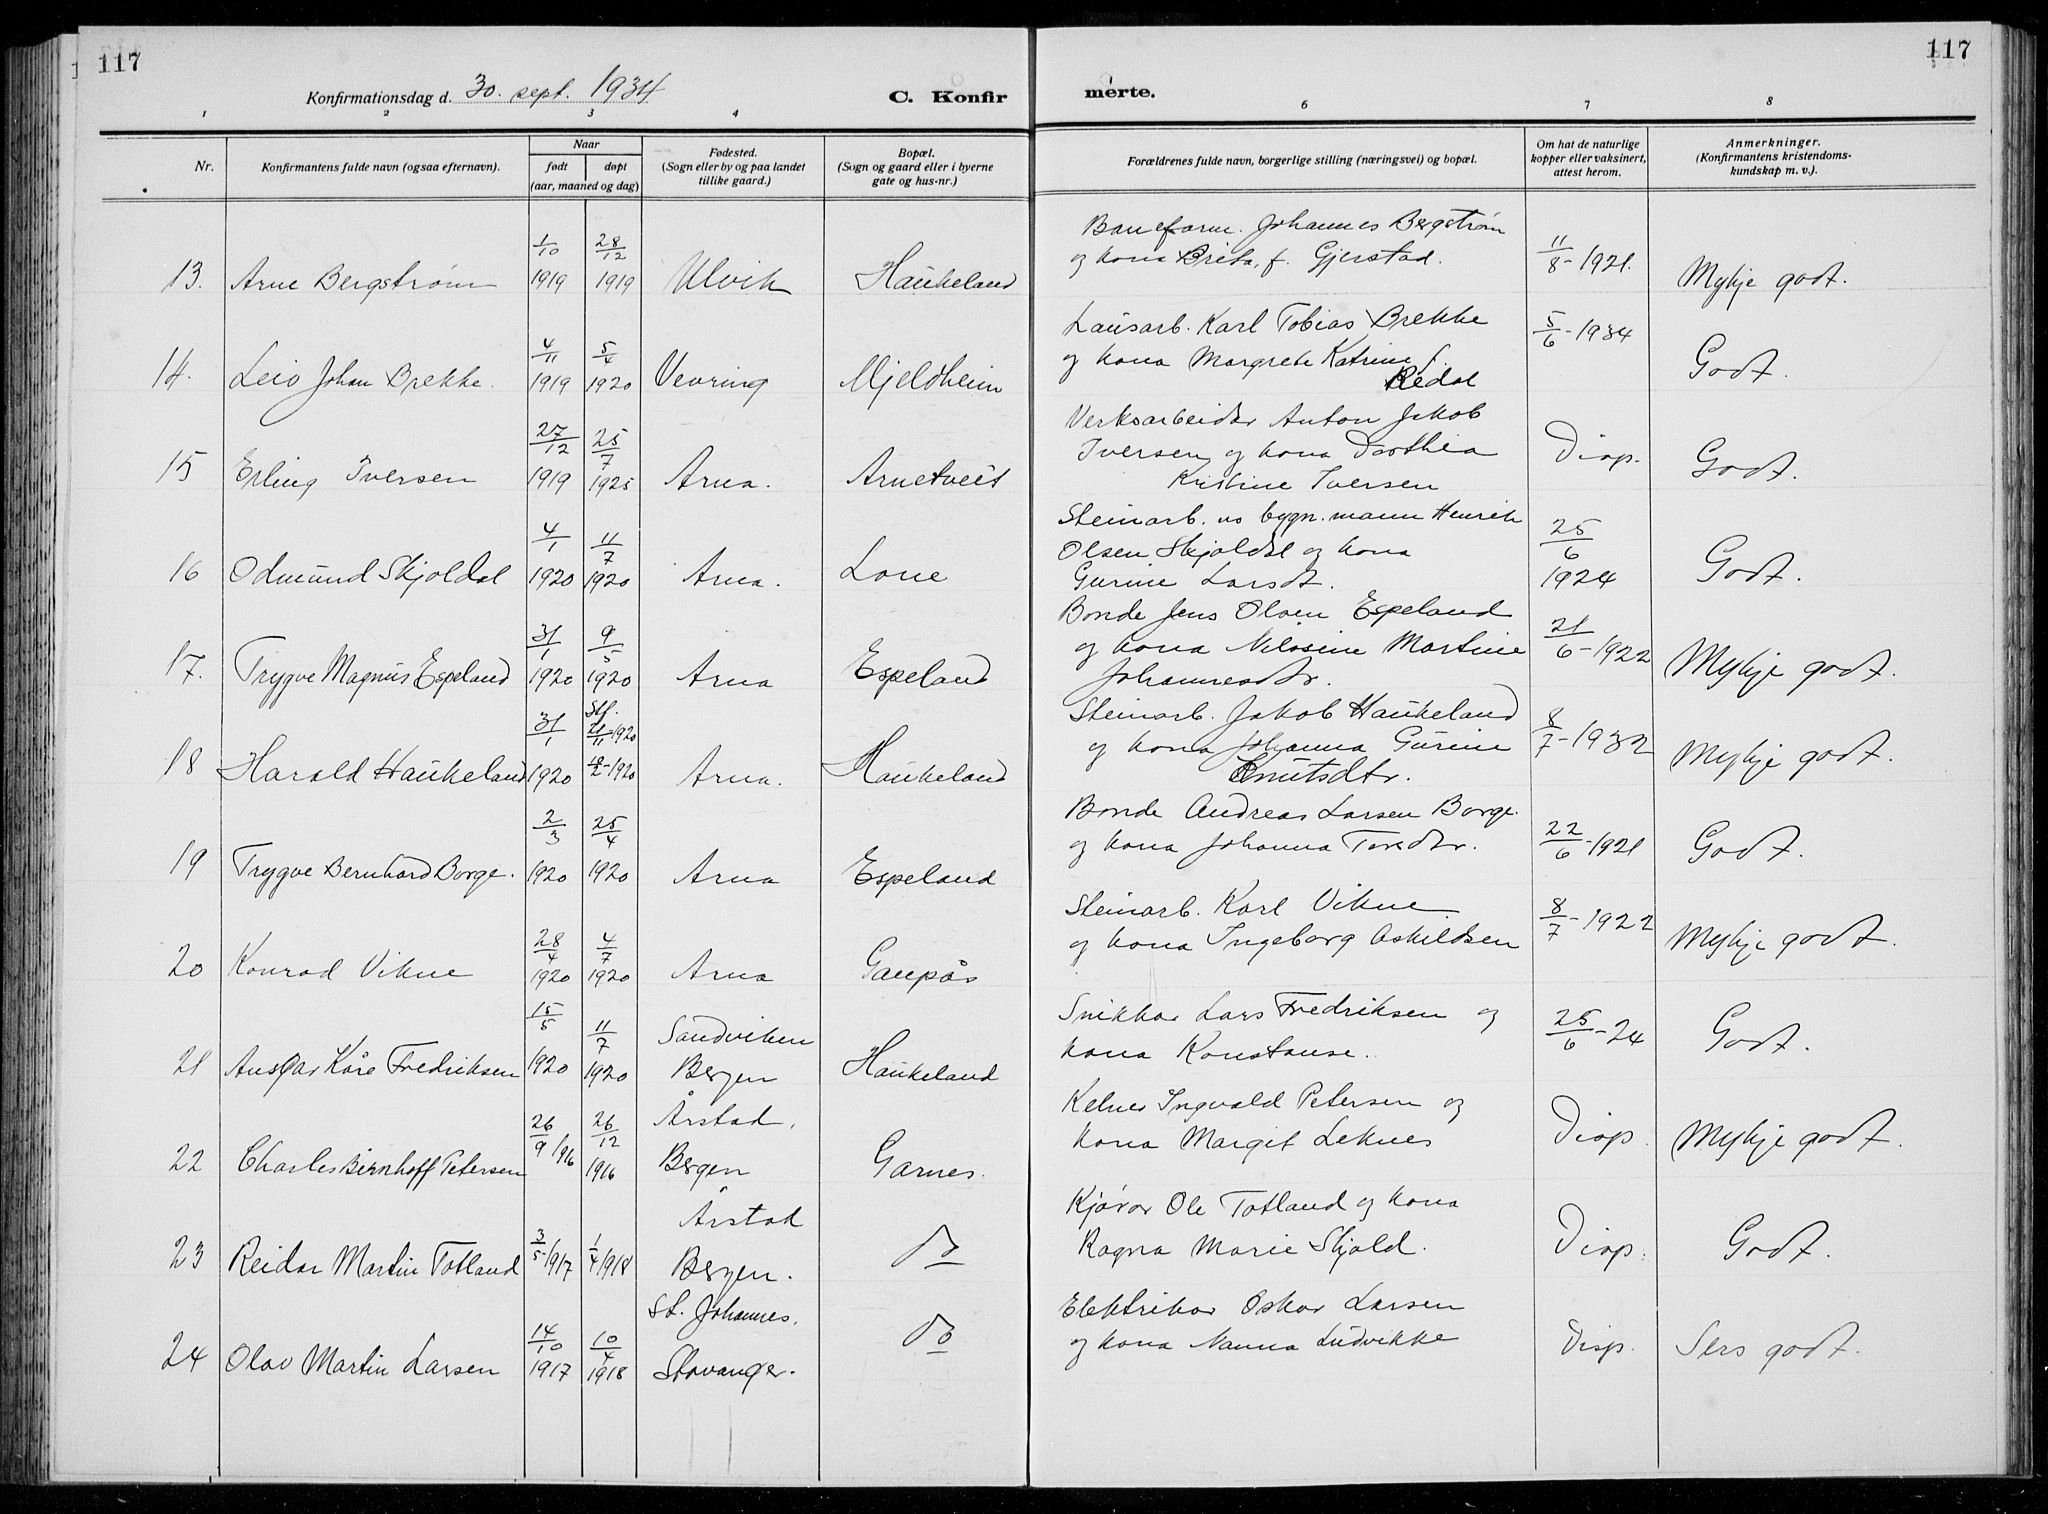 117
117
Konfirmationsdag d. 30. sept. 1934
C. Konfir
merte.
1 2 3 4 6 7 8
Nr.
Konfirmantens fulde navn (ogsaa efternavn).
Naar
født døpt
(aar, maaned og dag)
Fødested.
(Sogn eller by og paa landet
tillike gaard.)
Bopæl.
(Sogn og gaard eller i byerne
gate og hus-nr.)
Forældrenes fulde navn, borgerlige stilling (næringsvei) og bopæl.
Om hat de naturlige
kopper eller vaksinert,
attest herom.
Anmerkninger.
(Konfirmantens kristendoms-
kundskap m. v.).
13. Arne Bergstrøm 1/10 1919 28/12 1919 Ulvik Haukeland
Baneform. Johannes Bergstrøm
og kona Brita, f. Gjerstad. 11/8-1921. Mykje godt.
14. Leiv Johan Brekke. 4/11 1919 5/4 1920 Vevring Mjeldheim
Lausarb. Karl Tobias Brekke
og kona Margrete Katrine f.
Redal 5/6-1934 Godt.
15 Erling Iversen 27/12 1919 25/7 1925 Arna. Arnetveit
Verksarbeider Anton Jakob
Iversen og kona Dorthea
Kristine Iversen Disp. Godt.
16 Odmund Skjoldal 4/1 1920 11/7 1920 Arna. Lone
Steinarb. og bygn. mann Henrik
Olsen Skjoldal og kona
Gurine Larsdt. 25/6 1924 Godt.
17. Trygve Magnus Espeland 31/1 1920 9/5 1920 Arna Espeland
Bonde Jens Olsen Espeland
og kona Nilsine Martine
Johannesdtr. 21/6-1922 Mykje godt.
18 Harald Haukeland 31/1 1920 Stf. 21/11-1920 8/2-1920 Arna. Haukeland
Steinarb. Jakob Haukeland
og kona Johanna Gurine
Knutsdtr. 8/7-1932 Mykje godt.
19 Trygve Bernhard Borge. 2/3 1920 25/4 1920 Arna Espeland
Bonde Andreas Larsen Borge.
og kona Johanna Toredtr. 22/6-1921 Godt.
20 Konrad Vikne 28/4 1920 4/7 1920 Arna Gaupås
Steinarb. Karl Vikne
og kona Ingeborg Askildsen 8/7-1922 Mykje godt.
21 Ansgar Kåre Fredriksen 15/5 1920 11/7 1920 Sandviken Bergen Haukeland
Snikkar Lars Fredriksen og
kona Konstanse. 25/6-24 Godt.
22 Charles Birnhoff Petersen 26/9 1916 26/12 1916 Årstad, Bergen Garnes.
Kelner Ingvald Petersen og
kona Margit Leknes Disp. Mykje godt.
23 Reidar Martin Totland 3/5-1917 1/4 1918 Årstad Bergen. do
Kjørar Ole Totland og kona
Ragna Marie Skjold. Disp. Godt.
24 Olav Martin Larsen 14/10 1917 10/4 1918 St. Johannes, Stavanger. do
Elektrikar Oskar Larsen
og kona Nanna Ludvikke Disp. Sers godt.